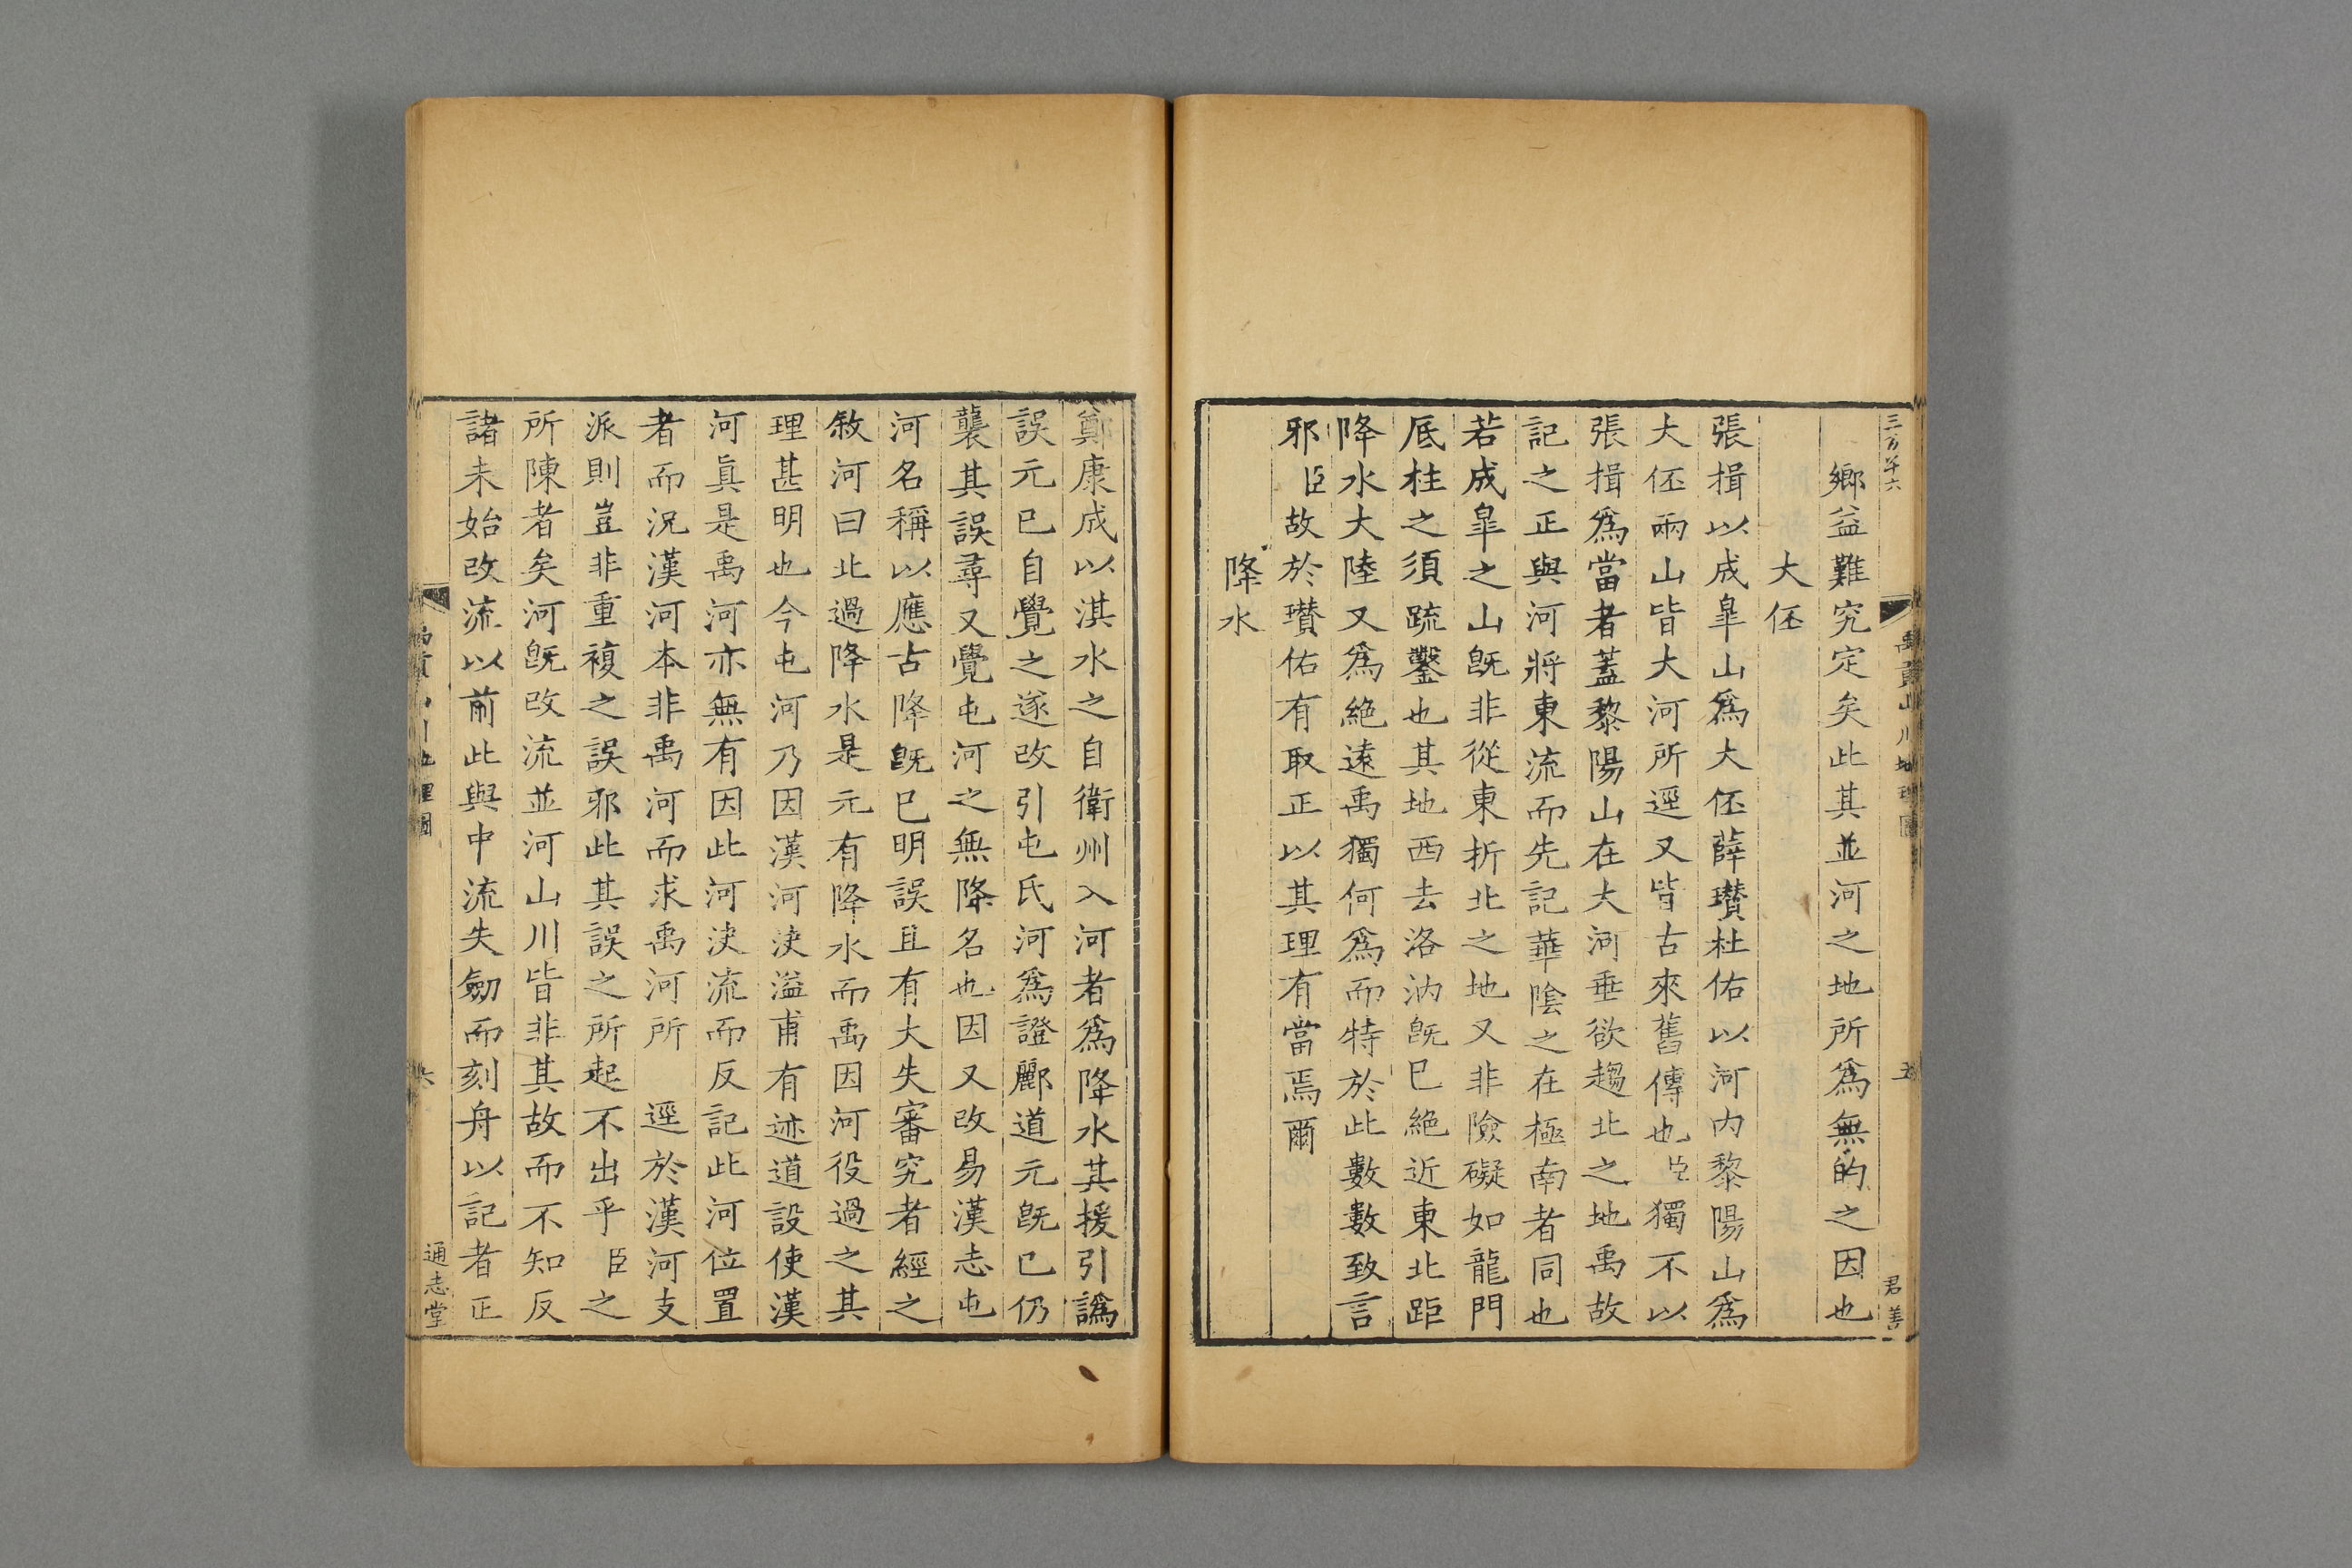 鄉益難究定矣此其並河之地所爲無的之因也
大伾
張揖以成臯山爲大伾薛瓚杜佑以河内黎陽山爲
大伾兩山皆大河所逕又皆古來舊傳也臣獨不以
張揖爲當者蓋黎陽山在大河垂欲趨北之地禹故
記之正與河將東流而先記華陰之在極南者同也
若成臯之山旣非從東折北之地又非險礙如龍門
厎柱之須疏鑿也其地西去洛汭旣已絶近東北距
降水大陸又爲絶遠禹獨何爲而特於此數數致言
邪臣故於瓚佑有取正以其理有當焉爾
降水
君善
鄭康成以淇水之自衛州入河者爲降水其援引譌
誤元已自覺之遂改引屯氏河爲證酈道元旣已仍
襲其誤尋又覺屯河之無降名也因又改易漢志屯
河名稱以應古降旣已明誤且有大失審究者經之
敘河曰北過降水是元有降水而禹因河役過之其
理甚明也今屯河乃因漢河決溢甫有迹道設使漢
河眞是禹河亦無有因此河決流而反記此河位置
者而況漢河本非禹河而求禹河所逕於漢河支
派則豈非重複之誤邪此其誤之所起不出乎臣之
所陳者矣河旣改流並河山川皆非其故而不知反
諸未始改流以前此與中流失劒而刻舟以記者正
六
通志堂